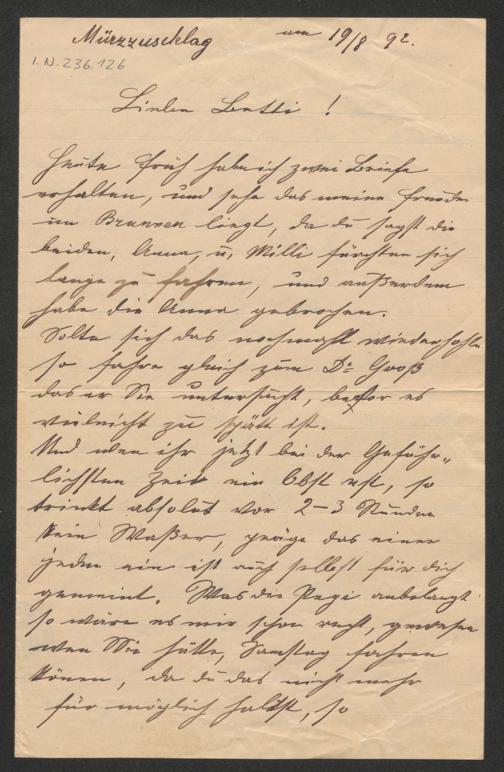 Mürzzuschlag am 19/8 92.
I.N. 236.126
Liebe Betti!
Heute früh habe ich zwei Briefe
erhalten, und sehe das meine Freude
im Brunnen liegt, da du sagst die
beiden, Anna, u, Milli fürchten sich
lange zu fahren, und außerdem
habe die Anna gebrochen.
Solte sich das nochmahl wiederhohlen
so fahre gleich zum Dr Groß
das er Sie untersucht, befor es
vieleicht zu spätt ist.
Und wen ihr jetzt bei der Gefähr„
lichsten Zeit ein Obst est, so
trinkt absolut vor 2–3 Stunden
kein Waßer, präge das einer
jeden ein ist auch selbst für dich
gemeint. Was die Pepi anbelangt
so wäre es mir schon recht, gewesen
wen Sie hätte, Samstag fahren
können, da du das nicht mehr
für möglich halst, so